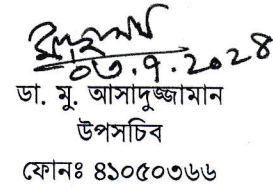 ০৩.৭.২০২৪
ডা. মু. আসাদুজ্জামান
উপসচিব
ফোনঃ ৪১০৫০৩৬৬